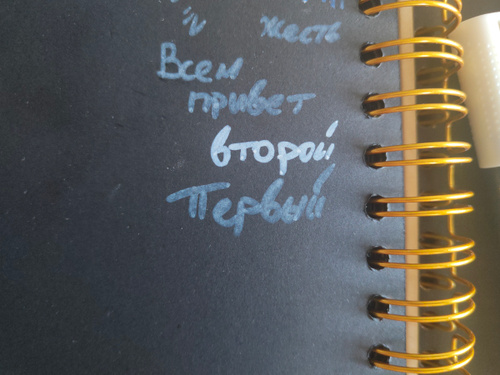 жесть
Всем
привет
второй
Первый